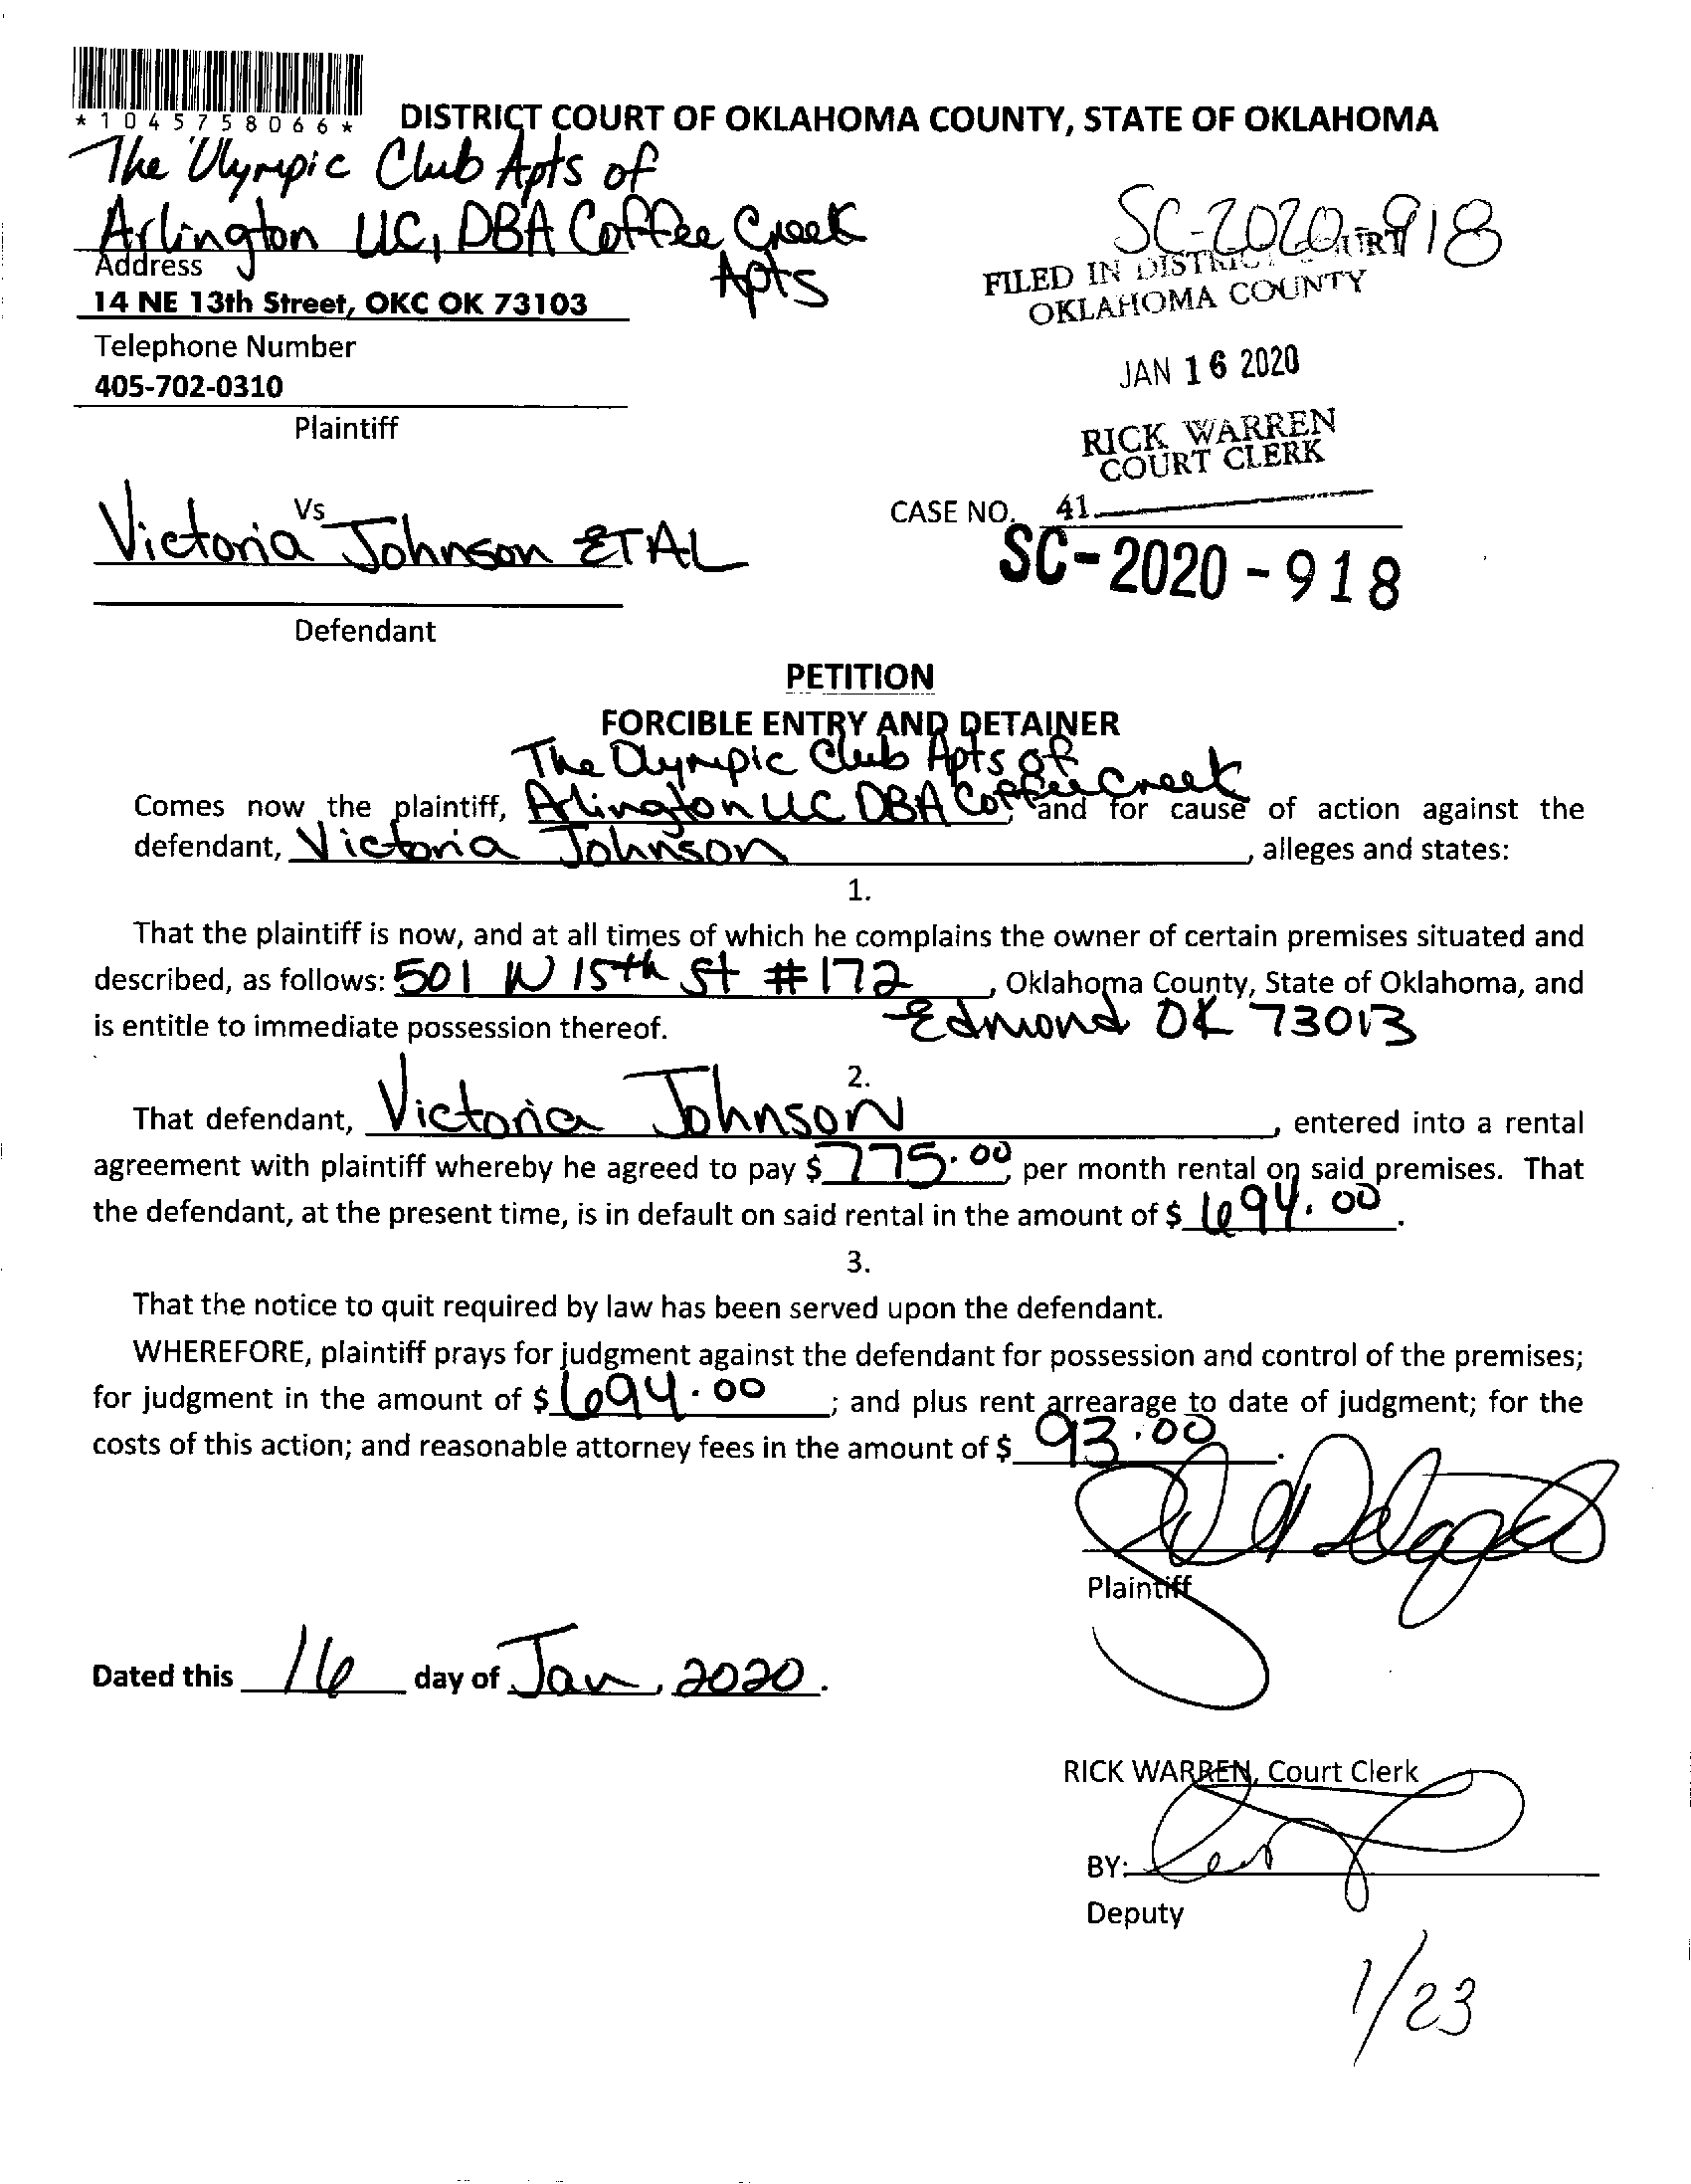 *1045758066*
DISTRICT COURT OF OKLAHOMA COUNTY, STATE OF OKLAHOMA
The Olympic Club Apts of
Arlington LLC, DBA Coffee Creek
Apts
Address
14 NE 13th Street, OKC OK 73103
Telephone Number
405-702-0310
Plaintiff
SC-2020-918
FILED IN DISTRICT COURT
OKLAHOMA COUNTY
JAN 16 2020
RICK WARREN
COURT CLERK
Vs
Victoria Johnson ETAL
Defendant
CASE NO. 41
SC-2020-918
PETITION
FORCIBLE ENTRY AND DETAINER
The Olympic Club Apts of
Comes now the plaintiff, Arlington LLC DBA Coffee Creek, and for cause of action against the
defendant, Victoria Johnson, alleges and states:
1.
That the plaintiff is now, and at all times of which he complains the owner of certain premises situated and
described, as follows: 501 W 15th St #172, Oklahoma County, State of Oklahoma, and
is entitle to immediate possession thereof. Edmond OK 73013
2.
That defendant, Victoria Johnson, entered into a rental
agreement with plaintiff whereby he agreed to pay $ 775.00, per month rental on said premises. That
the defendant, at the present time, is in default on said rental in the amount of $ 694.00.
3.
That the notice to quit required by law has been served upon the defendant.
WHEREFORE, plaintiff prays for judgment against the defendant for possession and control of the premises;
for judgment in the amount of $ 694.00; and plus rent arrearage to date of judgment; for the
costs of this action; and reasonable attorney fees in the amount of $ 93.00.
Plaintiff
Dated this 16 day of Jan, 2020.
RICK WARREN, Court Clerk
BY:
Deputy
1/23